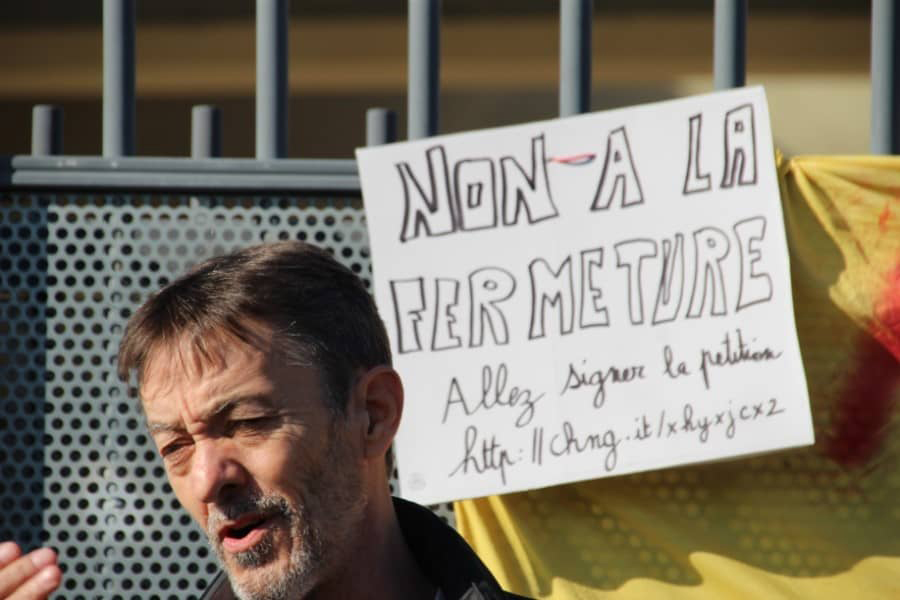 NON A LA
FERMETURE
Allez signer la petition
http://chng.it/xhyxjcx2